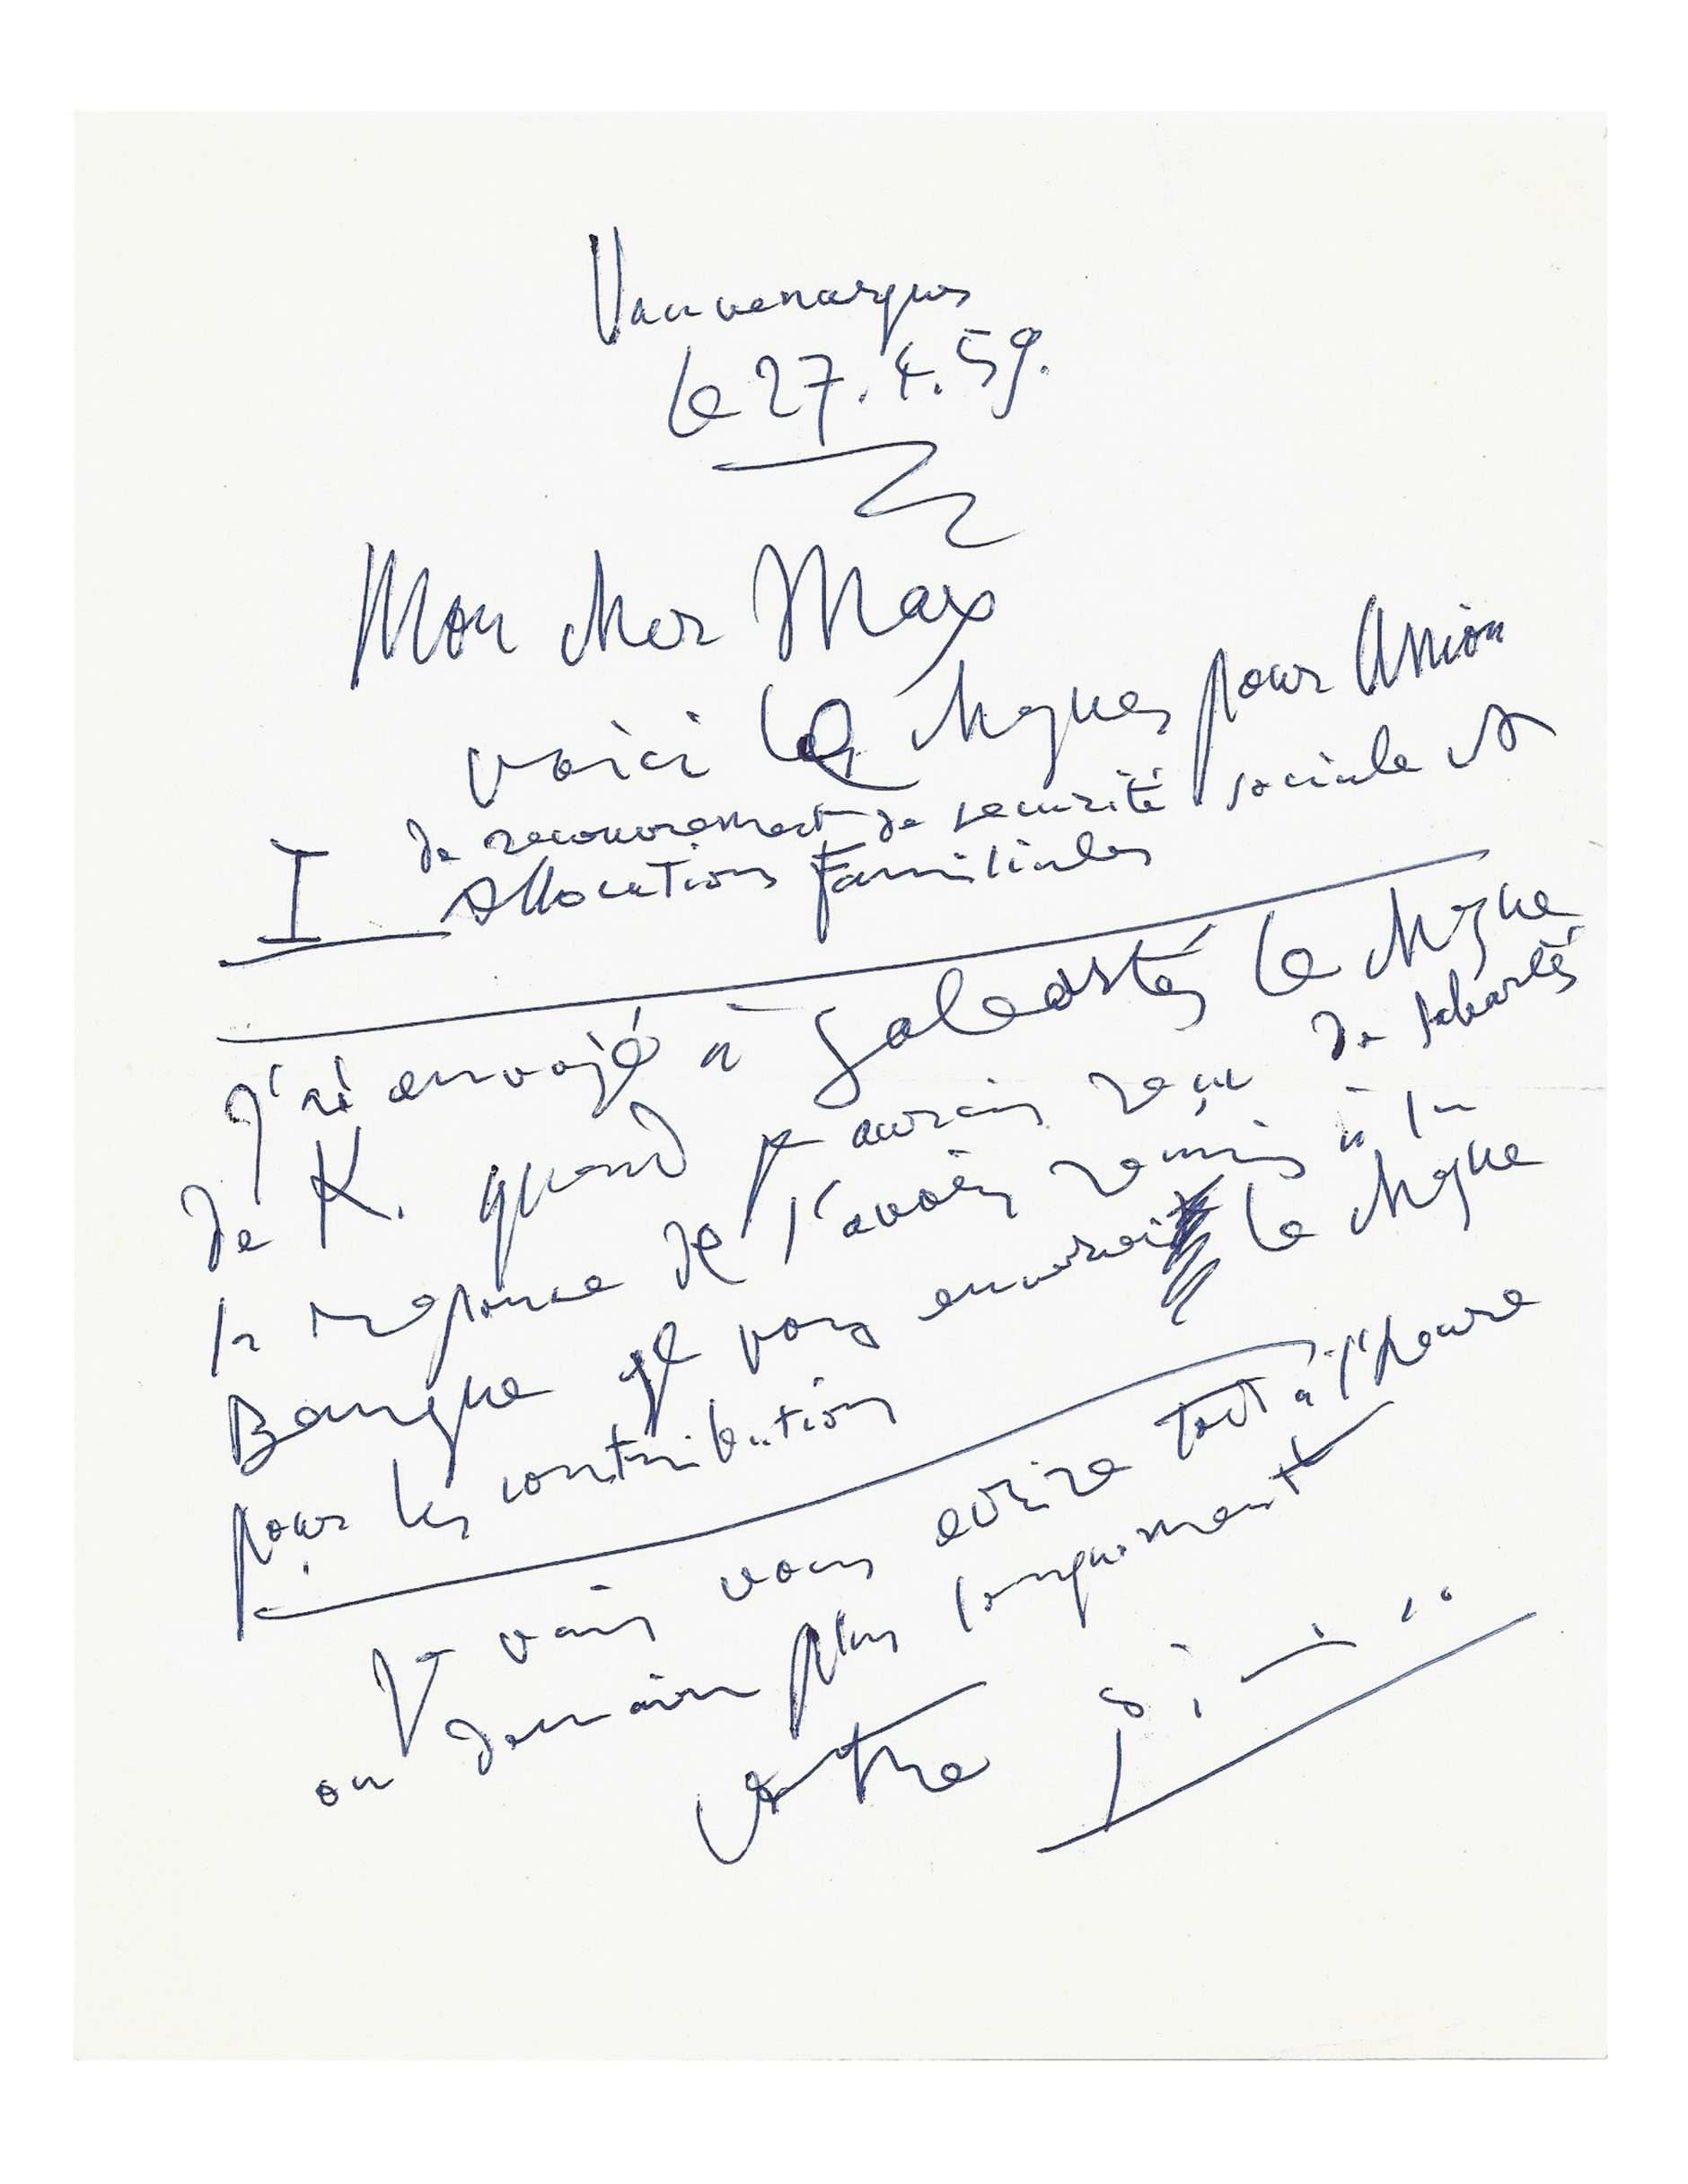 Vauvenargues
le 27.4.59.
Mon cher Max
voici le cheques pour Union
de recouvrement de securité sociale et
I Allocations Familiales
J'ai envoyé à le cheque
de K. quand je aurais reçu de
la reponse de l'avoir remis à la
Banque je vous enverrai le cheque
pour les contribution
Je vais vous ecrire tout à l'heure
ou demain plus longuement
votre